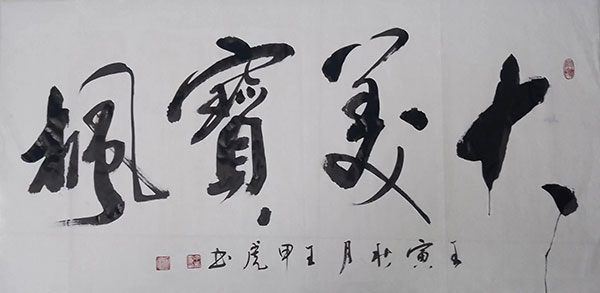 大美寶楓
壬寅秋月王甲虎书